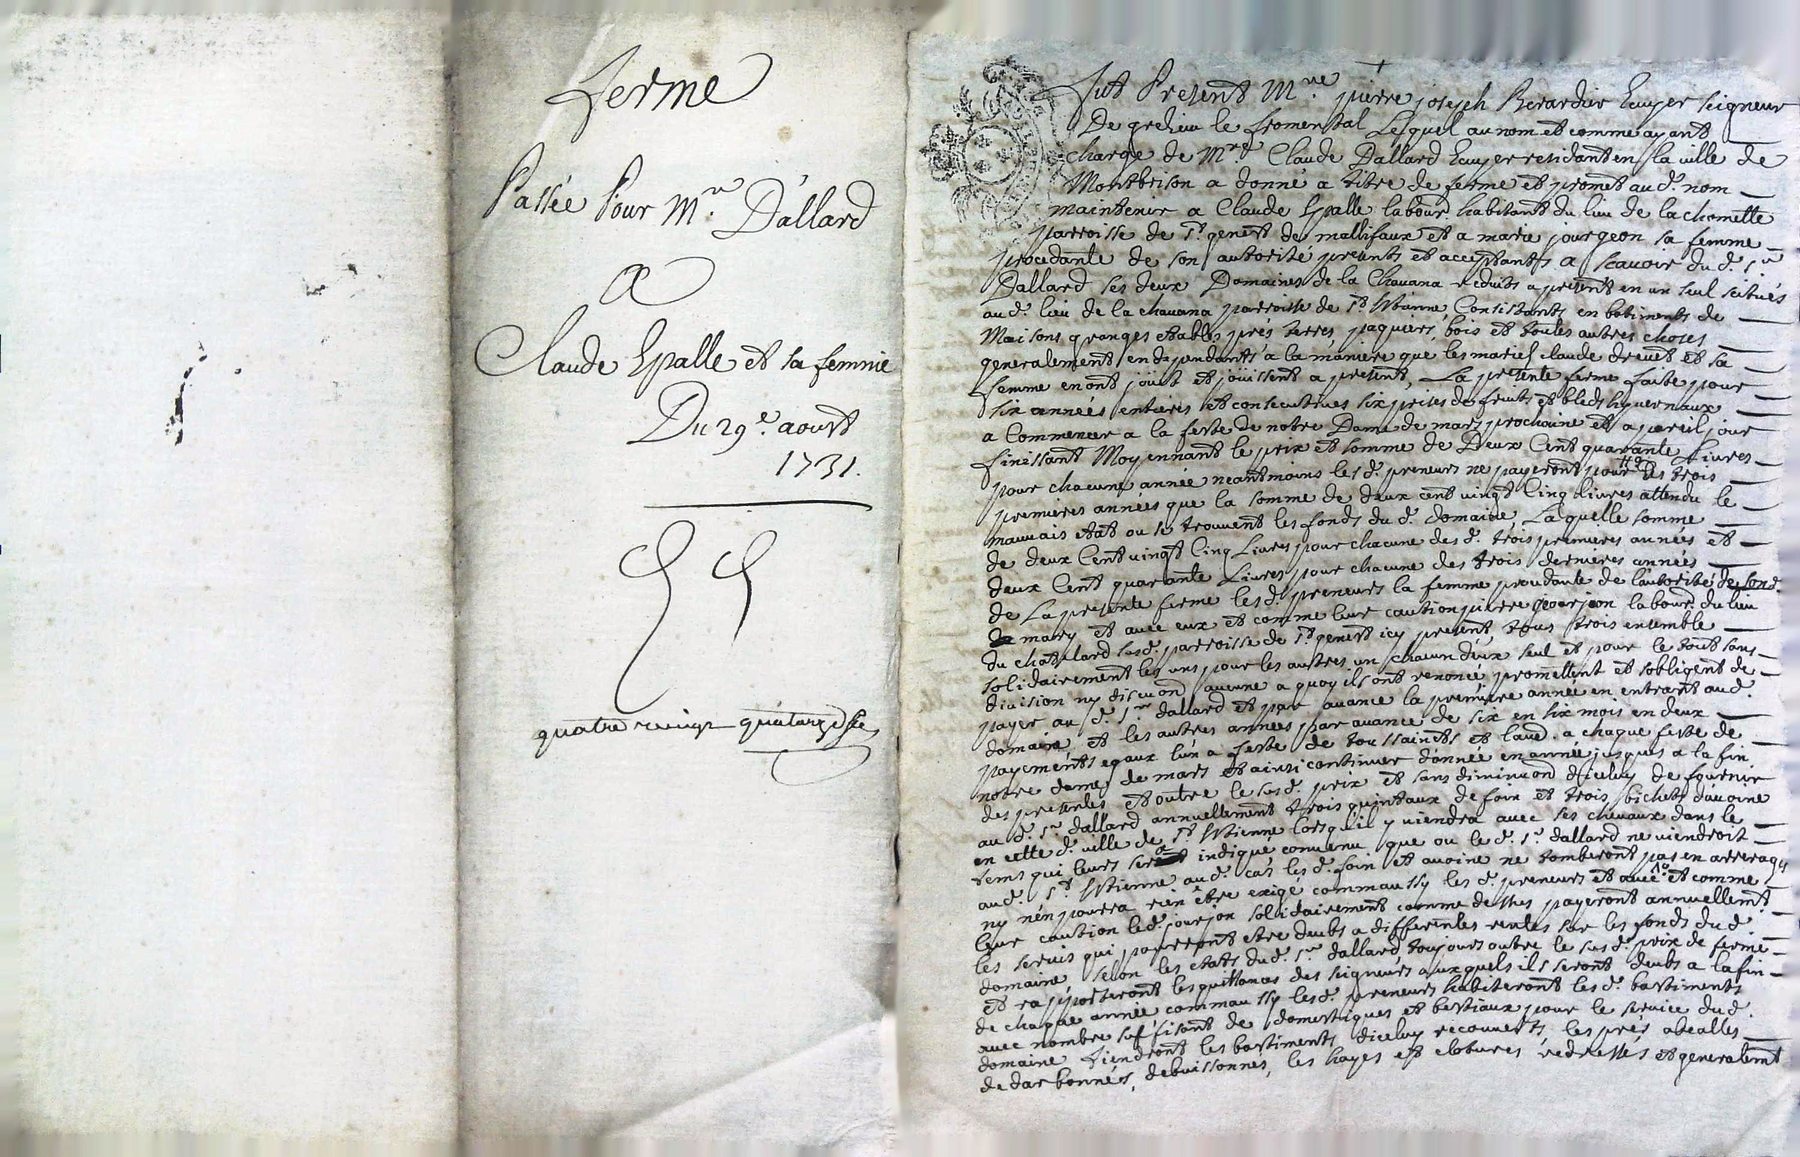 ferme
Passée Pour Mr. Dallard
a
Claude Epalle et sa femme
Du 29e. aoust
1731.
quatre vingt quatorze
fut Present Mre pierre joseph Berardier Ecuyer seigneur
De grezieu le fromental Lequel au nom et comme ayant
charge de Mre Claude Dallard Ecuyer residant en la ville de
Montbrison a donné a titre de ferme et promet aud. nom
maintenir a Claude Epalle labour. habitant du lieu de la chomette
parroisse de st. genest de mallifaux et a marie jourjeon sa femme
procedante de son autorité presents et acceptants a scavoir dud. sr
Dallard ses deux Domaines de la Chavana reduits a present en un seul scitués
aud. lieu de la chavana parroisse de st. Estienne, Consistants en batiments de
Maisons granges etables prés terres, paquiers, bois et toutes autres choses
generalement en dependants a la maniere que les mariés claude drevet et sa
femme en ont joüit et joüissent a present, La presente ferme faite pour
six années entieres et consecutives six prises de fruits et bleds hyvernaux
a Commencer a la feste de notre Dame de mars prochaine et a pareil jour
finissant Moyennant le prix et somme de Deux Cent quarante Livres
pour chacune année neantmoins les d. preneurs ne payeront pour les trois
premieres années que la somme de deux cent vingt Cinq livres attendu le
mauvais etat ou se trouvent les fonds du d. domaine, Laquelle somme
de deux Cent vingt Cinq Livres pour chacune des d. trois premieres années et
deux Cent quarante Livres pour chacune des trois dernieres années
de La presente ferme les d. preneurs la femme procedante de l'autorité de sond.
mary et avec eux et comme leur caution pierre jourjeon labour. du lieu
du chatelard susd. parroisse de st. genest icy present, tous trois ensemble
solidairement les uns pour les autres un chacun d'eux seul et pour le tout sans
division ny discuon aucune a quoy ils ont renoncé promettent et s'obligent de
payer au d. sr. dallard et par avance la premiere année en entrant aud.
domaine, et les autres années par avance de six en six mois en deux
payements egaux l'un a feste de toussaints et l'au. a chaque feste de
notre dame de mars et ainsi continuer d'année en année jusques a la fin
des presentes et outre le susd. prix et sans diminuon d'iceluy de fournir
au d. sr. dallard annuellement trois quintaux de foin et trois bichets d'avoine
en cette d. ville de st. Estienne lorsqu'il y viendra avec ses chevaux dans le
tems qui leurs sera indiqué convenu que ou le d. sr. dallard ne viendroit
aud. st. Estienne aud. cas les d. foin et avoine ne tomberont pas en arrerages
ny n'en pourra rien être exigé comm'aussy les d. preneurs et avec et comme
leur caution led. jourjon solidairement comme dessus payeront annuellemt
les servis qui pourront etre deubs a differentes rentes sur les fonds dud.
domaine selon les etats dud. sr. dallard toujours outre le susd. prix de ferme
et rapporteront les quittances des seigneurs auxquels ils seront deubs a la fin
de chaque année comm'aussy les d. preneurs habiteront les d. bastiments
avec nombre suffisant de domestiques et bestiaux pour le service dud.
domaine tiendront les bastiments d'iceluy recouverts, les prés abealles
dedarbonnés, debuissonnés, les hayes et clotures redressés et generalemt